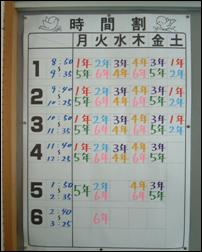 時間割
月 火 水 木 金 土
1 8:50 1年 2年 3年 4年 3年 1年
9:35 5年 6年 4年 6年 5年 2年
2 9:40 1年 2年 3年 4年 3年 1年
10:25 5年 6年 4年 6年 5年 2年
3 10:50 1年 2年 3年 4年 3年 1年
11:35 5年 6年 4年 6年 5年 2年
4 11:40 1年 2年 3年 4年 3年
12:25 5年 6年 4年 6年 5年
5 1:50 5年 2年 4年 3年
2:35 6年 6年 5年
6 2:40 6年
3:25